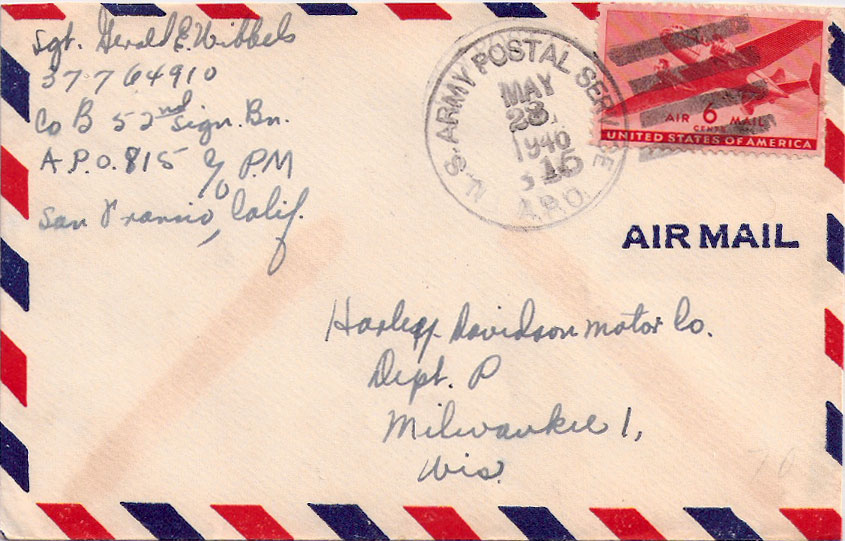 Sgt. Gerald E. Wibbels
37764910
Co B 52nd Sign. Bn.
A.P.O. 815 c/o P.M
San Francio, Calif.
U.S. ARMY POSTAL SERVICE
MAY
23
1946
A.P.O.
AIR 6 MAIL
CENTS
UNITED STATES OF AMERICA
AIR MAIL
Harley Davidson Motor Co.
Dept. P
Milwaukee 1,
Wis.